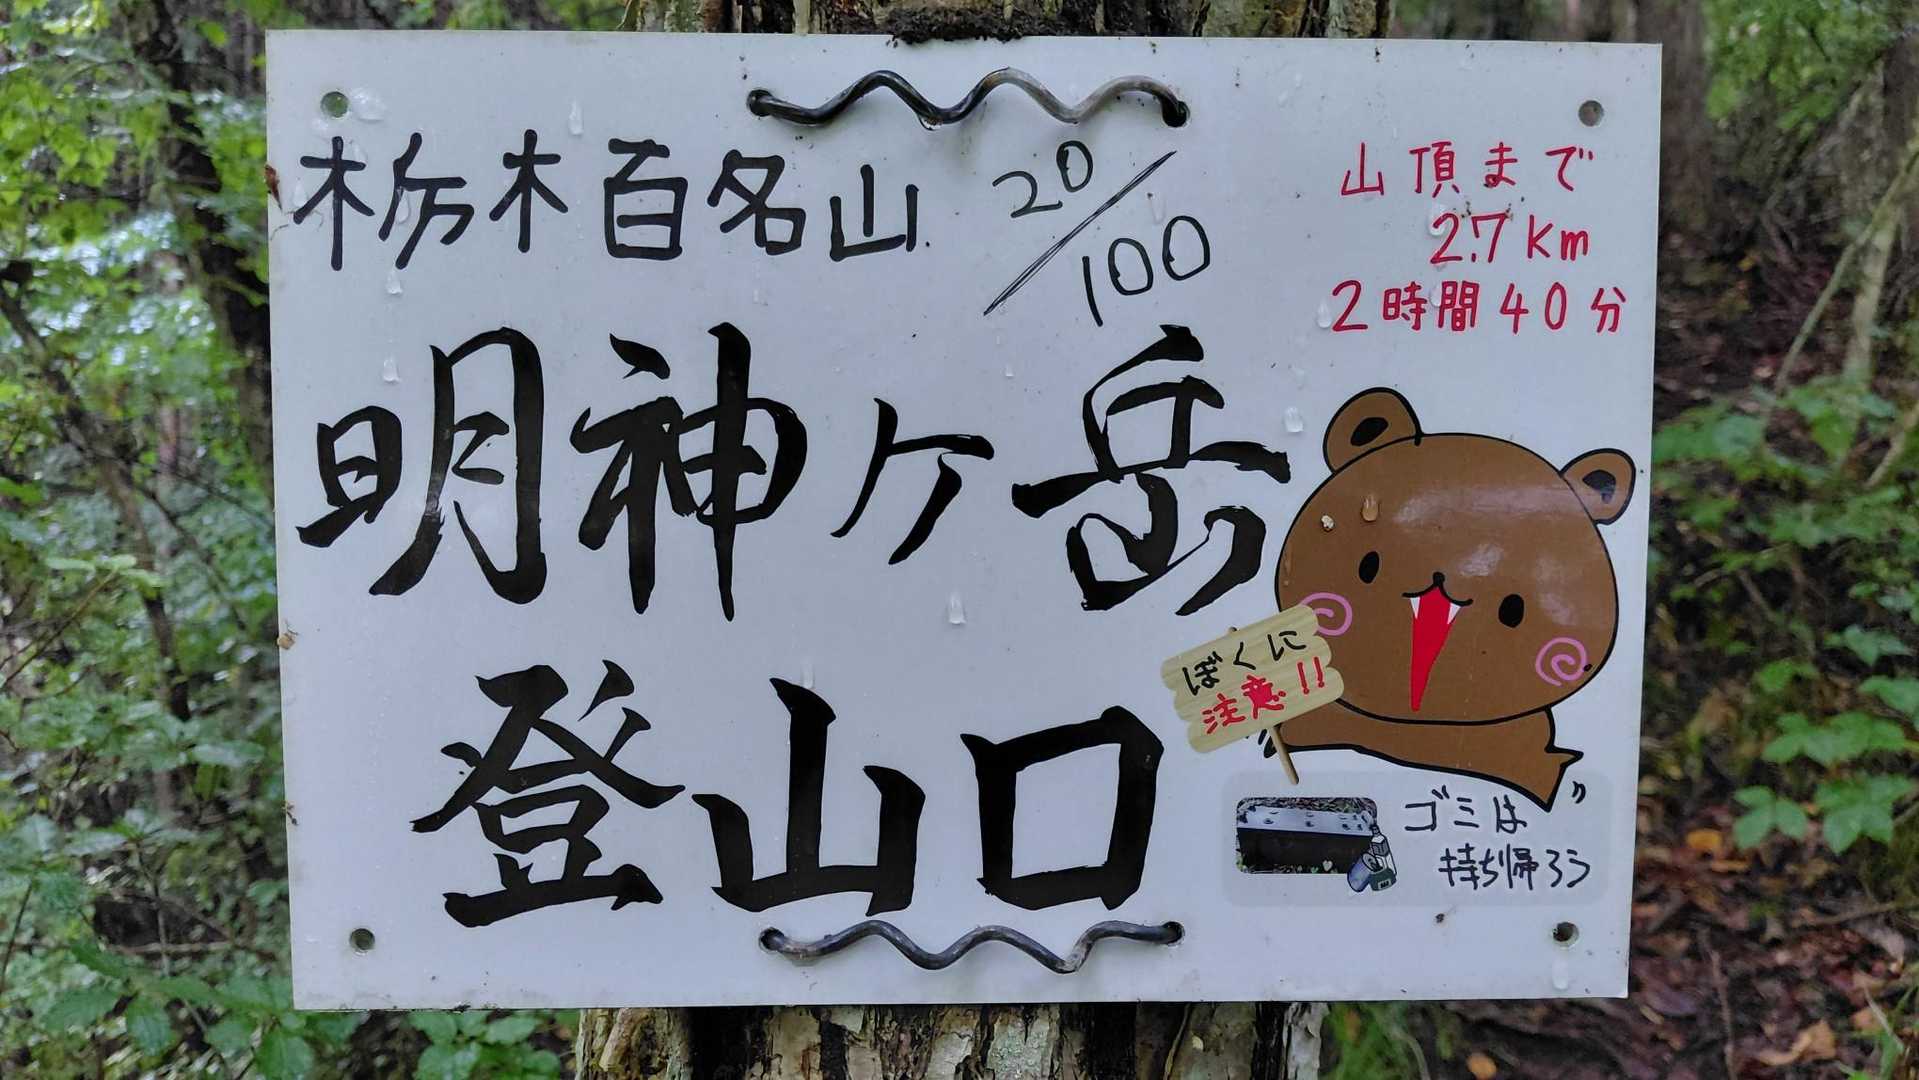 栃木百名山 20/100
山頂まで
2.7km
2時間40分
明神ヶ岳
登山口
ぼくに
注意!!
ゴミは
持ち帰ろう